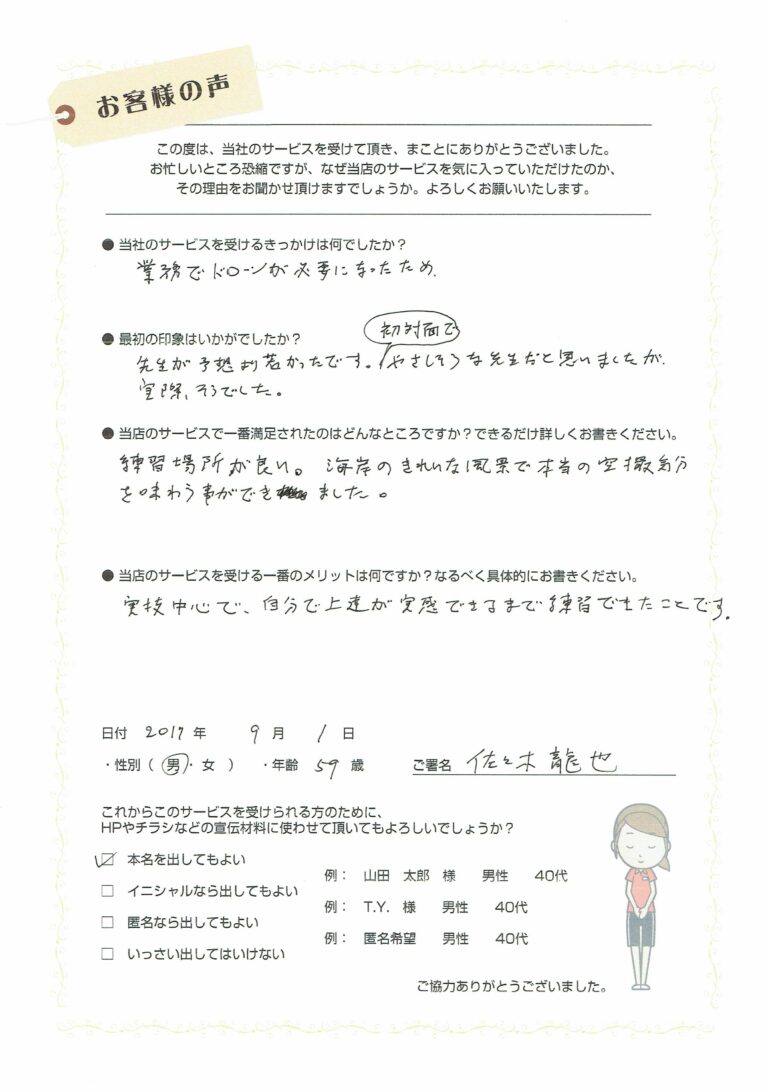 お客様の声
この度は、当社のサービスを受けて頂き、まことにありがとうございました。
お忙しいところ恐縮ですが、なぜ当店のサービスを気に入っていただけたのか、
その理由をお聞かせ頂けますでしょうか。よろしくお願いいたします。
● 当社のサービスを受けるきっかけは何でしたか？
業務でドローンが必要になったため.
● 最初の印象はいかがでしたか？
初対面で
先生が予想より若かったです。やさしそうな先生だと思いましたが.
実際、そうでした。
● 当店のサービスで一番満足されたのはどんなところですか？できるだけ詳しくお書きください。
練習場所が良い。海岸のきれいな風景で本当の空撮気分
を味わう事ができました。
● 当店のサービスを受ける一番のメリットは何ですか？なるべく具体的にお書きください。
実技中心で、自分で上達が実感できるまで練習できたことです.
日付 2017年 9月 1日
・性別（ 男・女 ） ・年齢 59 歳 ご署名 佐々木 龍也
これからこのサービスを受けられる方のために、
HPやチラシなどの宣伝材料に使わせて頂いてもよろしいでしょうか？
☑ 本名を出してもよい 例： 山田 太郎 様 男性 40代
□ イニシャルなら出してもよい 例： T.Y. 様 男性 40代
□ 匿名なら出してもよい 例： 匿名希望 男性 40代
□ いっさい出してはいけない
ご協力ありがとうございました。